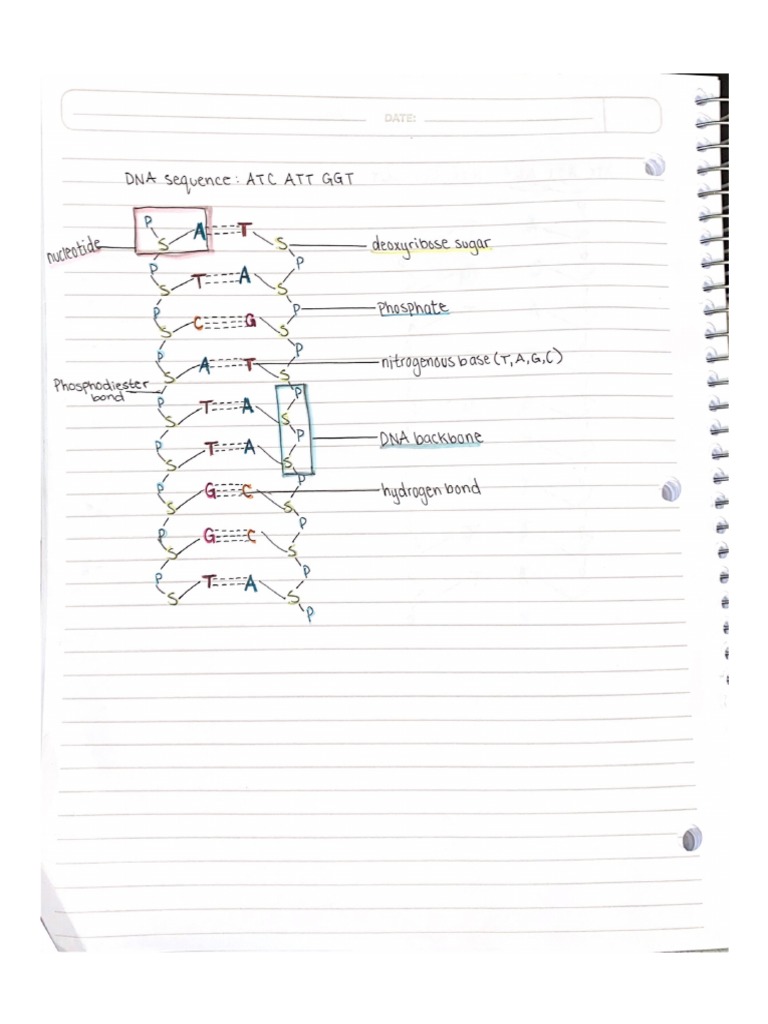 DATE:
DNA sequence: ATC ATT GGT
P
S A T S
nucleotide
deoxyribose sugar
P P
S T A S
P P
Phosphate
S C G S
P P
S A T S
nitrogenous base (T, A, G, C)
Phosphodiester
bond
P P
S T A S
P P
DNA backbone
S T A S
P P
S G C S
hydrogen bond
P P
S G C S
P P
S T A S
P